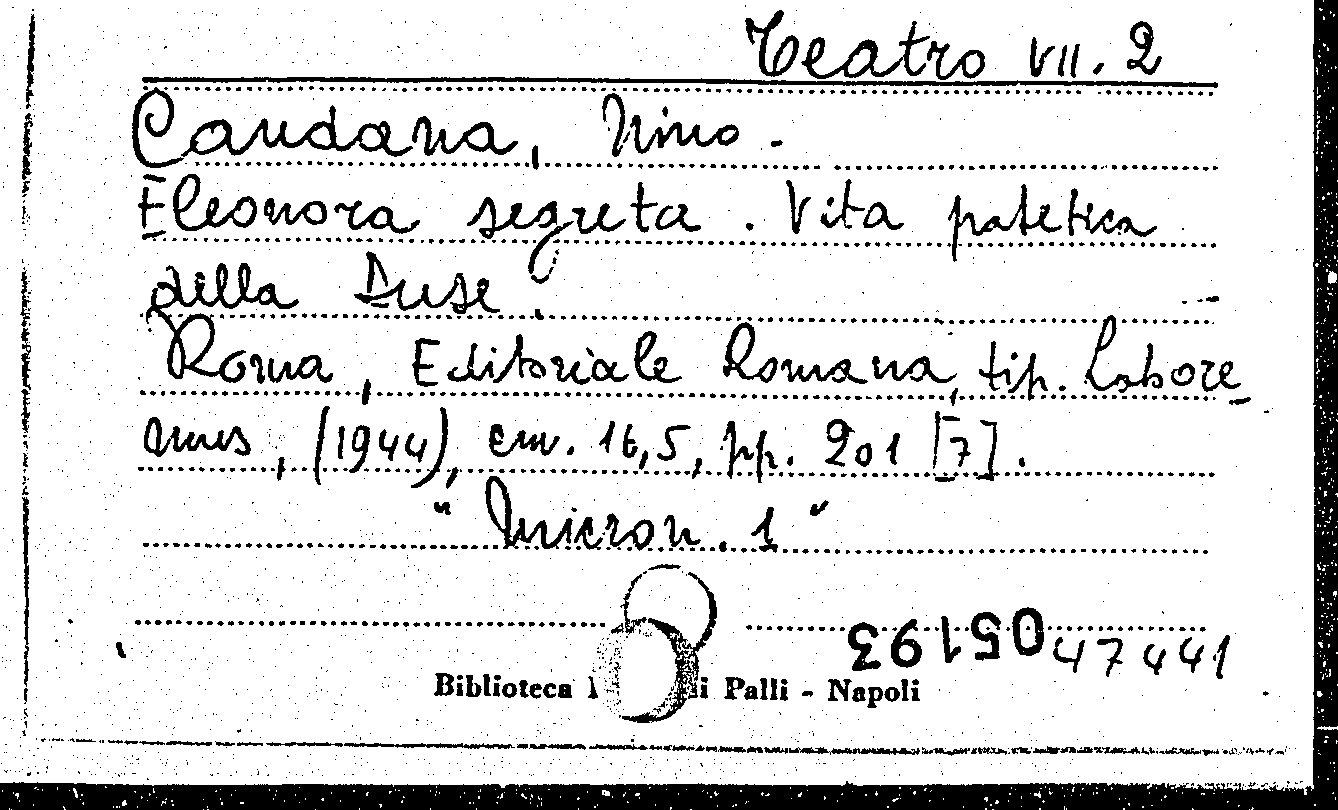 Teatro VII. 2
Caudana, Mino.
Eleonora segreta. Vita patetica
della Duse.
Roma, Editoriale Romana, tip. Labore-
mus, (1944), cm. 16,5, pp. 201 [7].
"Micron. 1"
05193 47441
Biblioteca Palli - Napoli